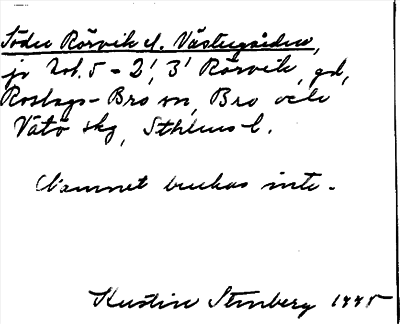 Söder Rörvik el. Västergården,
jr Lot. 5 = 2', 3' Rörvik, gd,
Roslags-Bro sn, Bro och
Vätö skg, Sthlms l.
Namnet brukas inte.
Kerstin Stenberg 1945